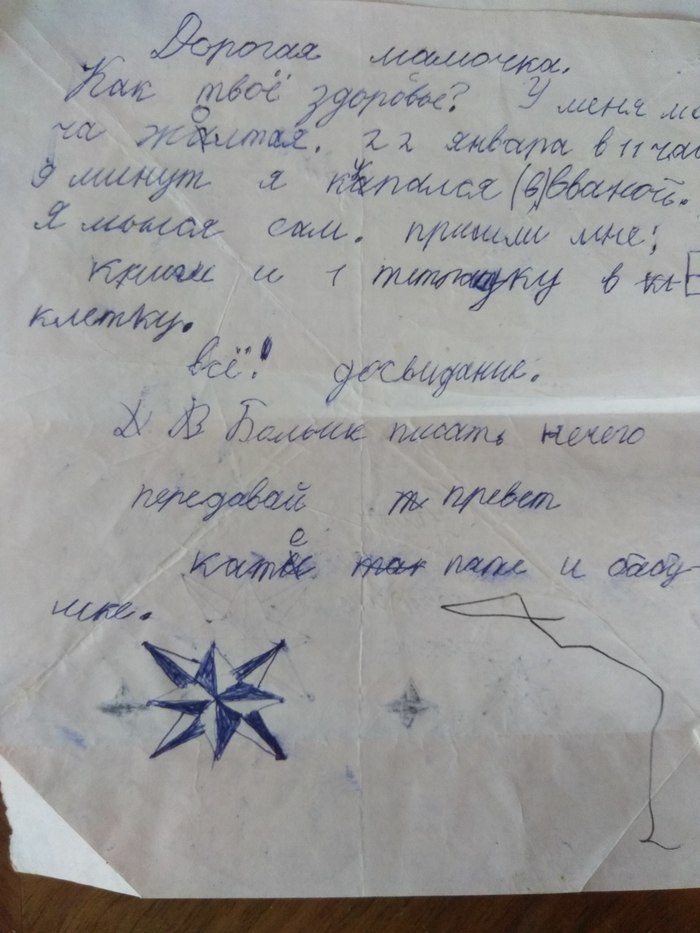 Дорогая мамочка.
Как твоё здоровье? У меня мо
ча жолтая. 22 января в 11 час
9 минут я купался (в) вваной.
Я мылся сам. пришли мне;
книги и 1 тетрадку в кл
клетку.
всё! досвидание.
Д В Больше писать нечего
передавай п превет
Кате папе и бабу
шке.